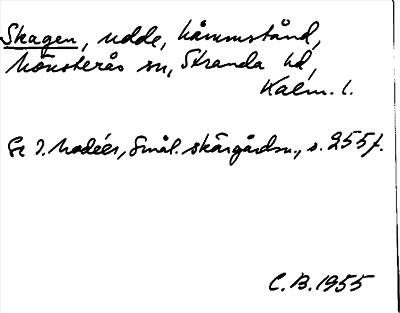 Skagen, udde, Lämmstånd,
Mönsterås sn, Stranda hd,
Kalm. l.
Se I. Modéer, Smål. skärgårdsn., s. 255 f.
C. B. 1955